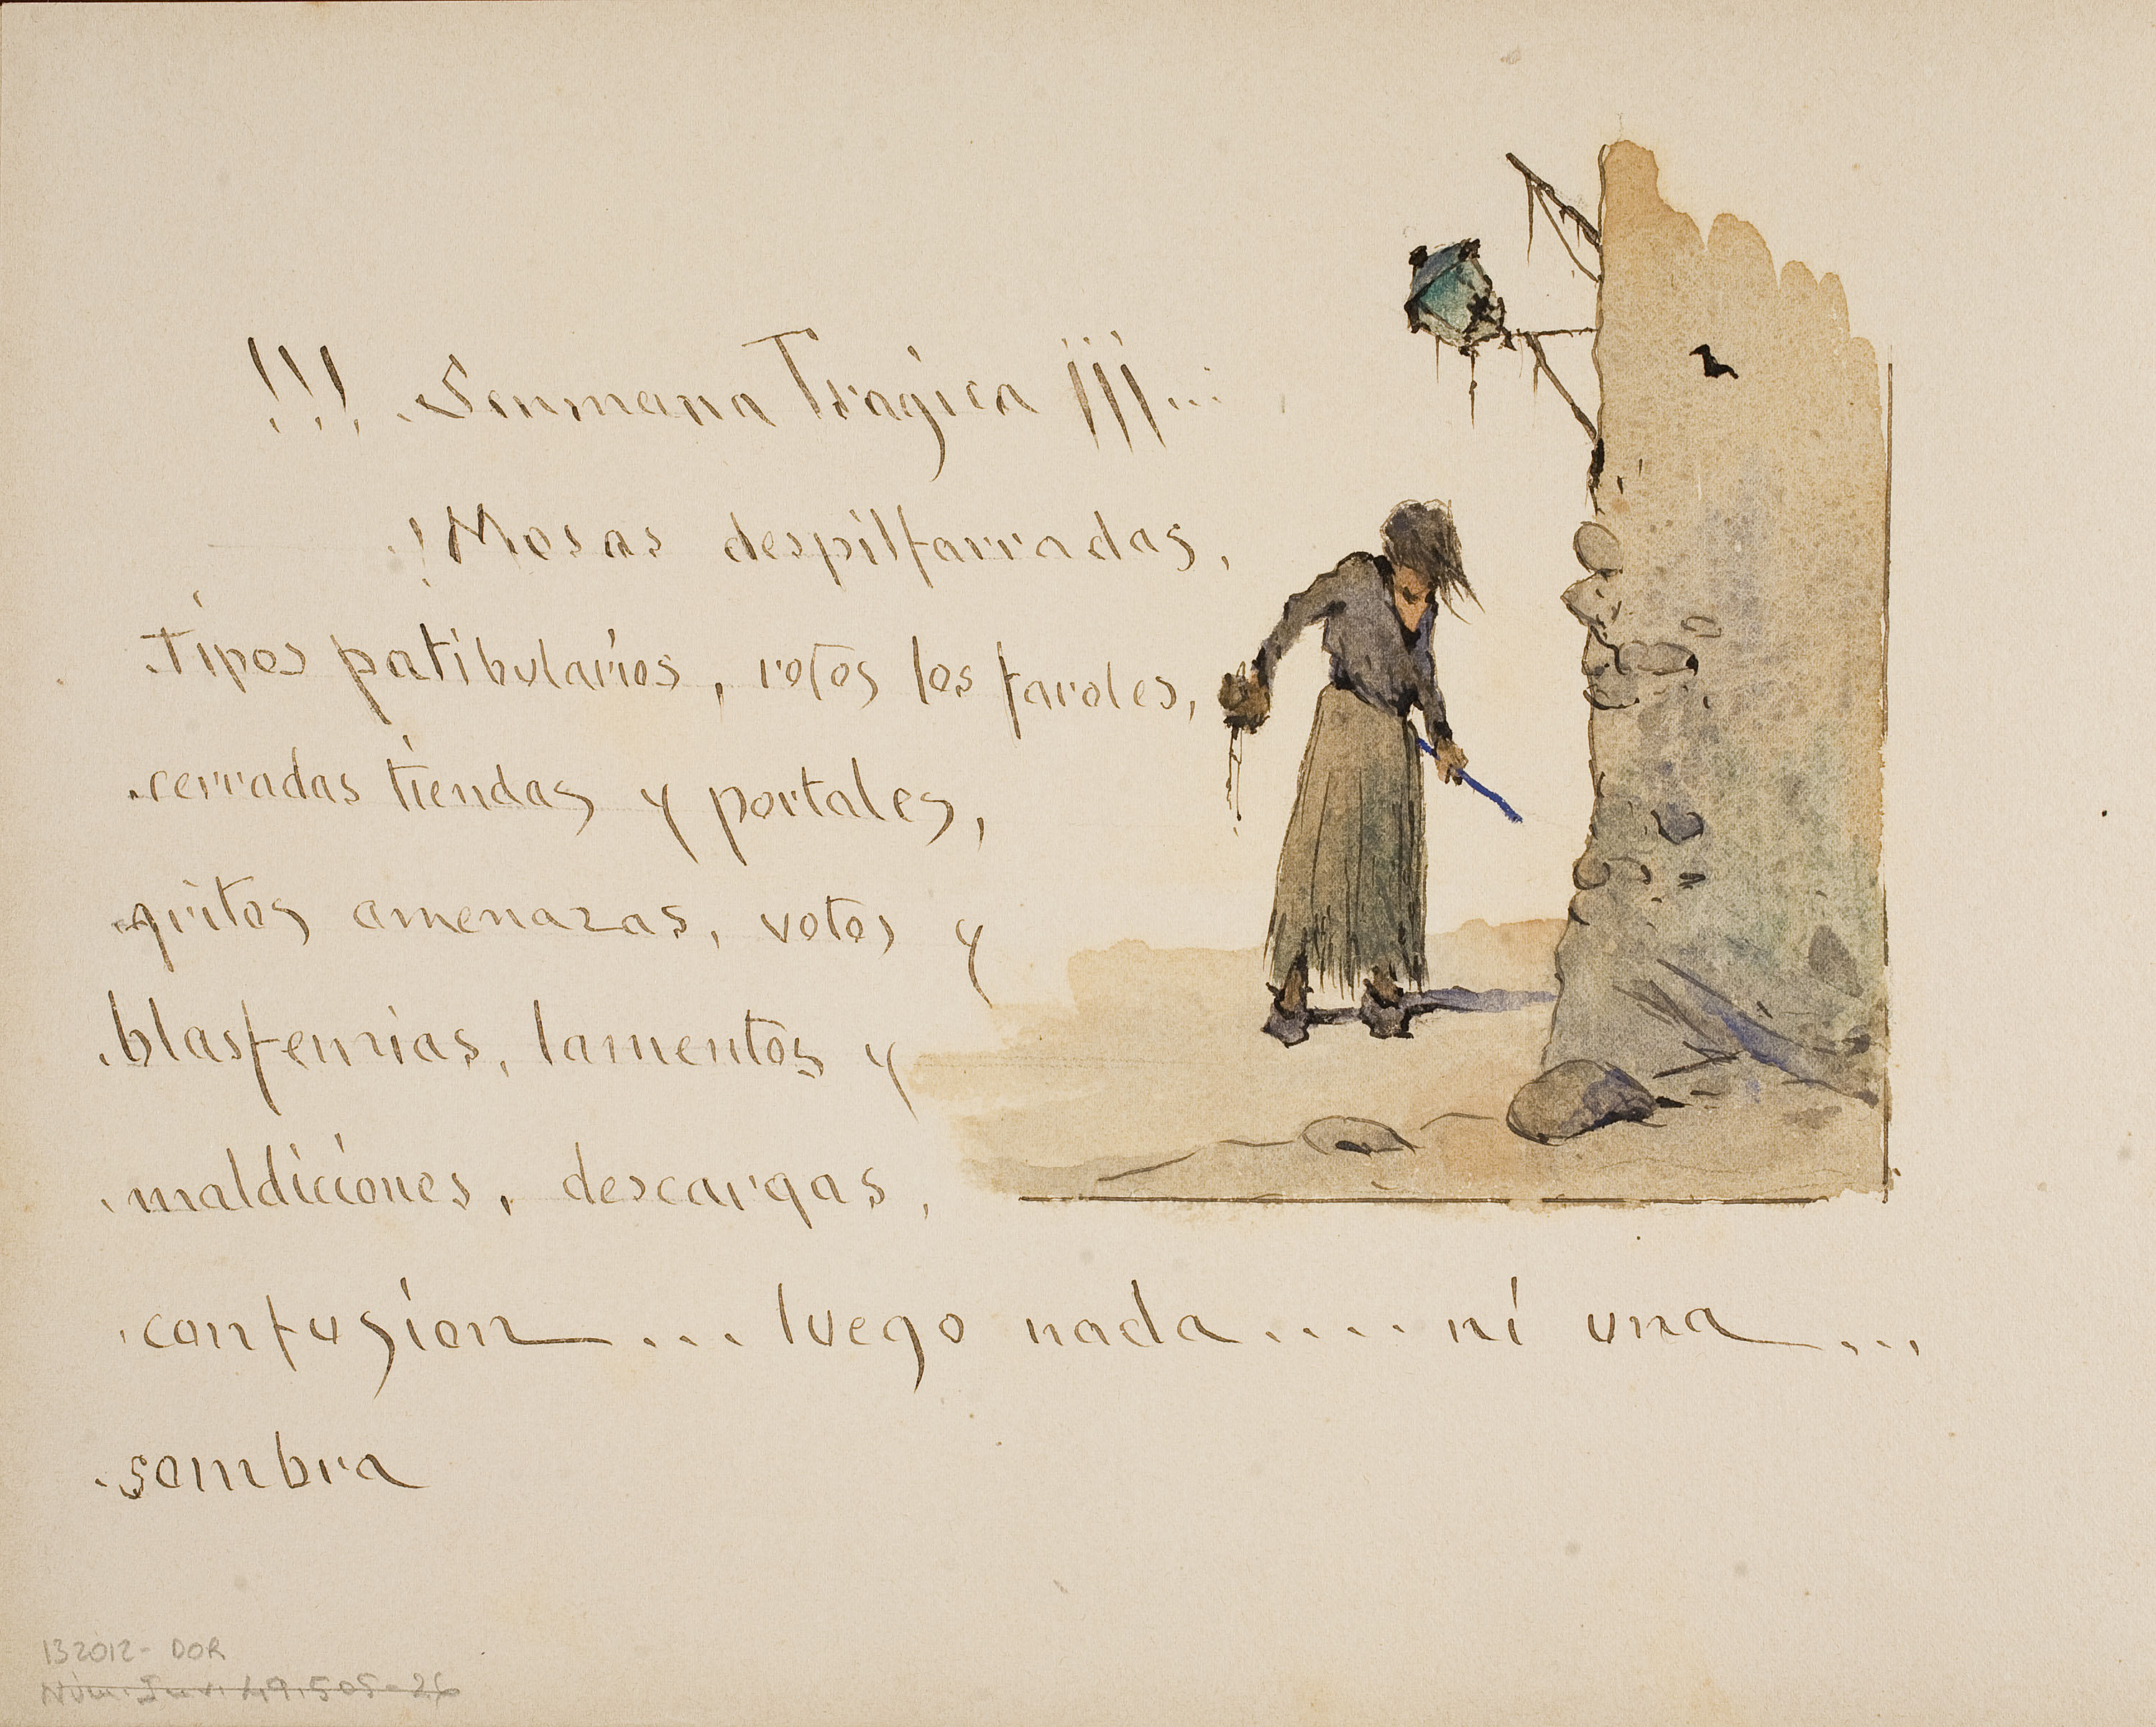 !!! Senmana Tragica ¡¡¡...
! Mosas despilfarradas,
tipos patibularios, rotos los faroles,
cerradas tiendas y portales,
gritos amenazas, votos y
blasfemias, lamentos y
maldiciones, descargas,
confusion ... luego nada .... ni una ...
sombra
132012- DOR
Núm. Inv. 49.505-26